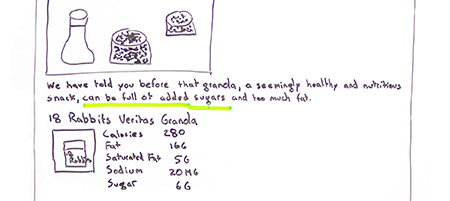 We have told you before that granola, a seemingly healthy and nutritious
snack, can be full of added sugars and too much fat.
18 Rabbits Veritas Granola
Calories 280
Fat 16G
Saturated Fat 5G
Sodium 20MG
Sugar 6G
Rabbits